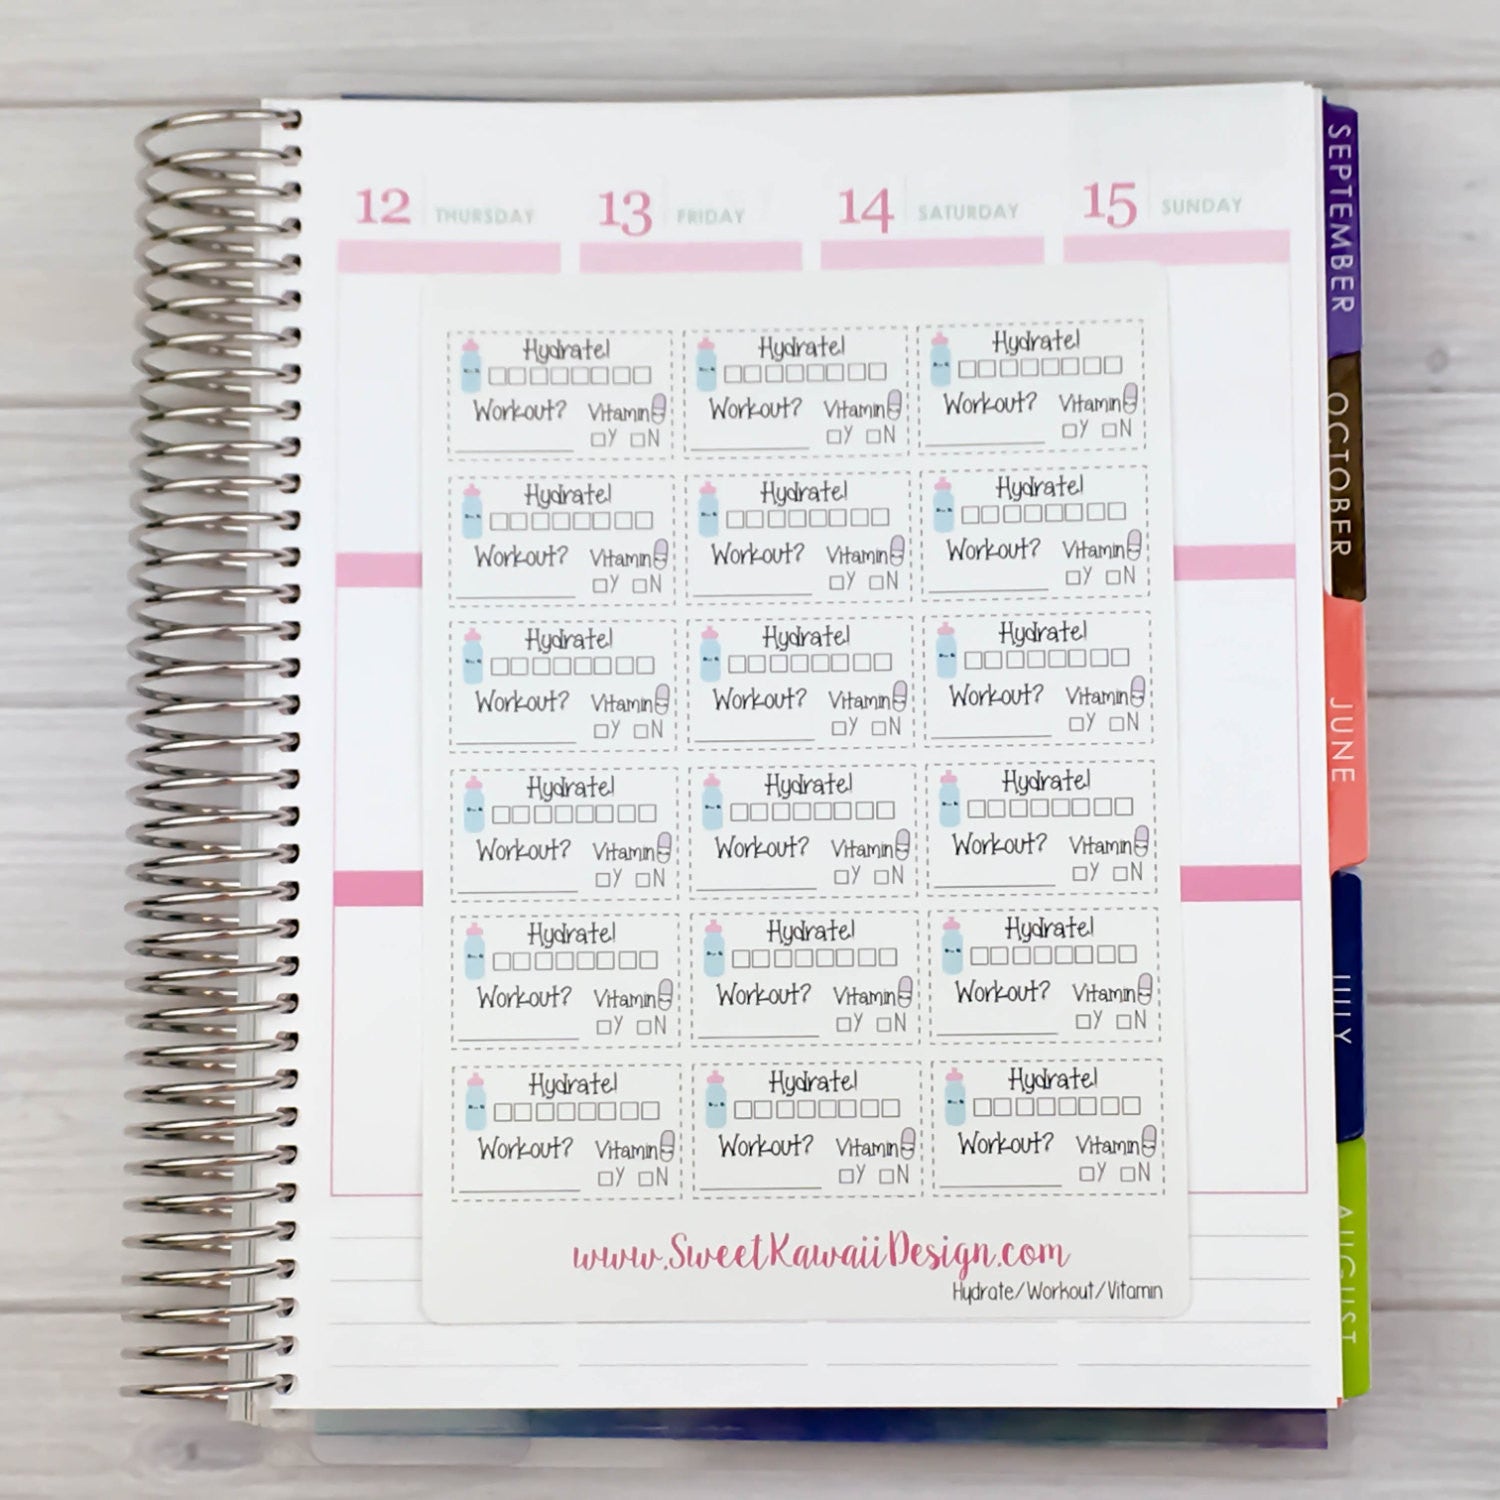 12 THURSDAY 13 FRIDAY 14 SATURDAY 15 SUNDAY
Hydrate! Hydrate! Hydrate!
Workout? Vitamin Workout? Vitamin Workout? Vitamin
Y N Y N Y N
Hydrate! Hydrate! Hydrate!
Workout? Vitamin Workout? Vitamin Workout? Vitamin
Y N Y N Y N
Hydrate! Hydrate! Hydrate!
Workout? Vitamin Workout? Vitamin Workout? Vitamin
Y N Y N Y N
Hydrate! Hydrate! Hydrate!
Workout? Vitamin Workout? Vitamin Workout? Vitamin
Y N Y N Y N
Hydrate! Hydrate! Hydrate!
Workout? Vitamin Workout? Vitamin Workout? Vitamin
Y N Y N Y N
Hydrate! Hydrate! Hydrate!
Workout? Vitamin Workout? Vitamin Workout? Vitamin
Y N Y N Y N
www.SweetKawaiiDesign.com
Hydrate/Workout/Vitamin
SEPTEMBER
OCTOBER
JUNE
JULY
AUGUST